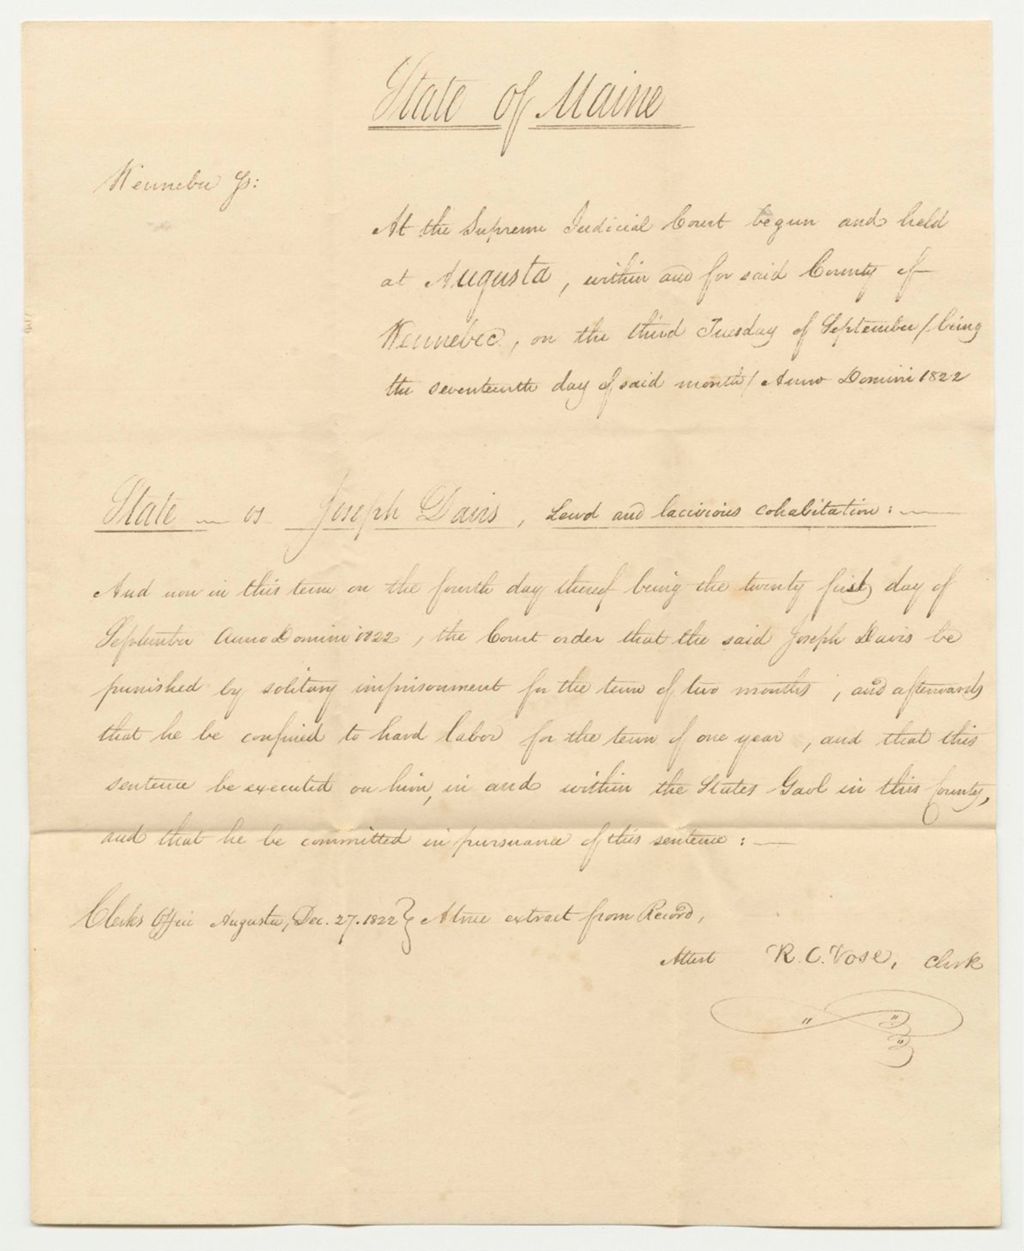 State of Maine
Kennebec ss:
At the Supreme Judicial Court begun and held
at Augusta, within and for said County of
Kennebec, on the third Tuesday of September / being
the seventeenth day of said month / Anno Domini 1822
State — vs Joseph Davis, Lewd and lacivious cohabitation: —
And now in this term on the fourth day thereof being the twenty first day of
September Anno Domini 1822, the Court order that the said Joseph Davis be
punished by solitary imprisonment for the term of two months, and afterwards
that he be confined to hard labor for the term of one year, and that this
sentence be executed on him, in and within the States Gaol in this County,
and that he be committed in pursuance of this sentence: —
Clerks Office Augusta, Dec. 27. 1822 } A true extract from Record,
Attest R. C. Vose, Clerk